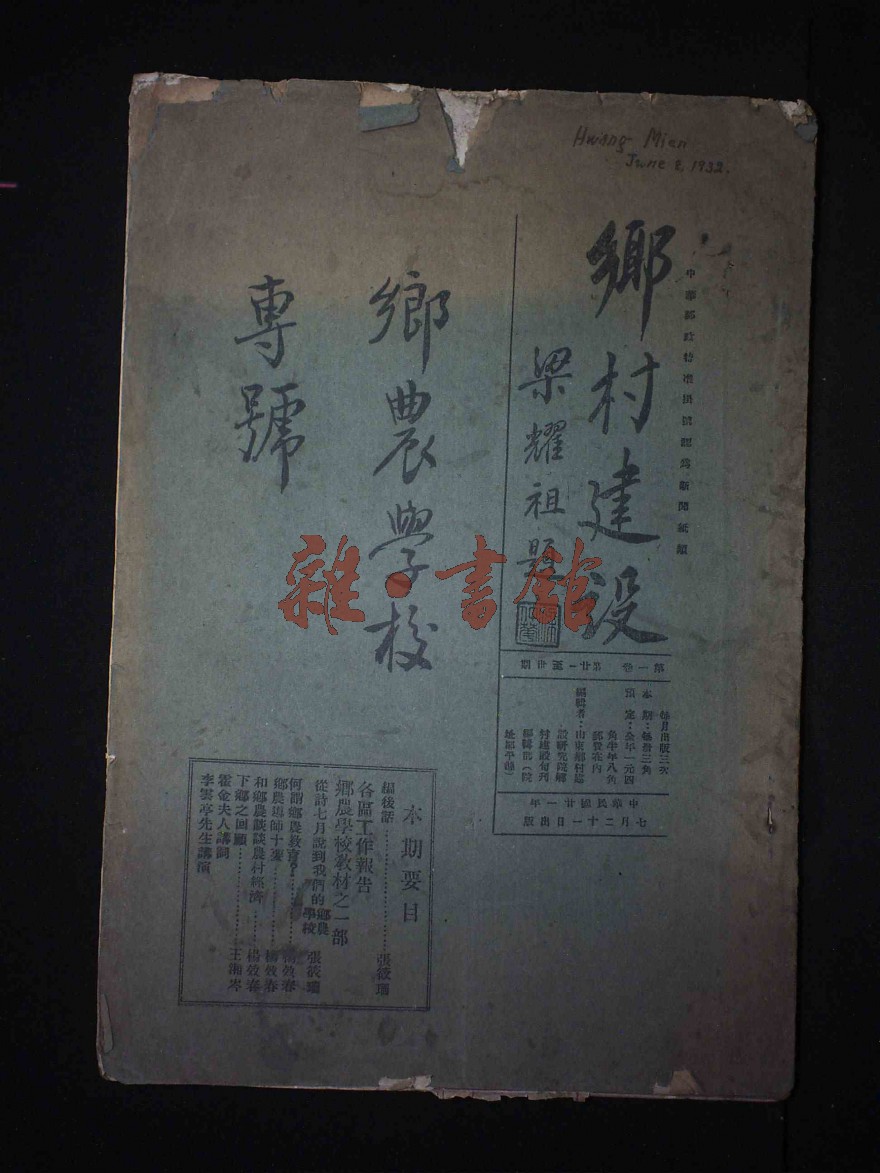 Hwang Mien
June 2, 1932.
中華郵政特准掛號認為新聞紙類
鄉村建設
梁耀祖題
第一卷 第廿一至卅期
每月出版三次
本期：每冊三角
預定：全年一元四
角半年八角
郵費在內
編輯者：山東鄉村建
設研究院鄉
村建設旬刊
編輯部（院
址鄒平縣）
中華民國廿一年
七月二十一日出版
鄉農學校
專號
雜·書館
本期要目
編後話……張筱珊
各區工作報告
鄉農學校教材之一部
從詩七月說到我們的鄉農學校 張筱珊
何謂鄉農教育？……楊效春
鄉農導師十要……楊效春
和鄉農談談農村經濟……楊效春
下鄉之回顧……王湘岑
霍金夫人講詞
李雲亭先生講演